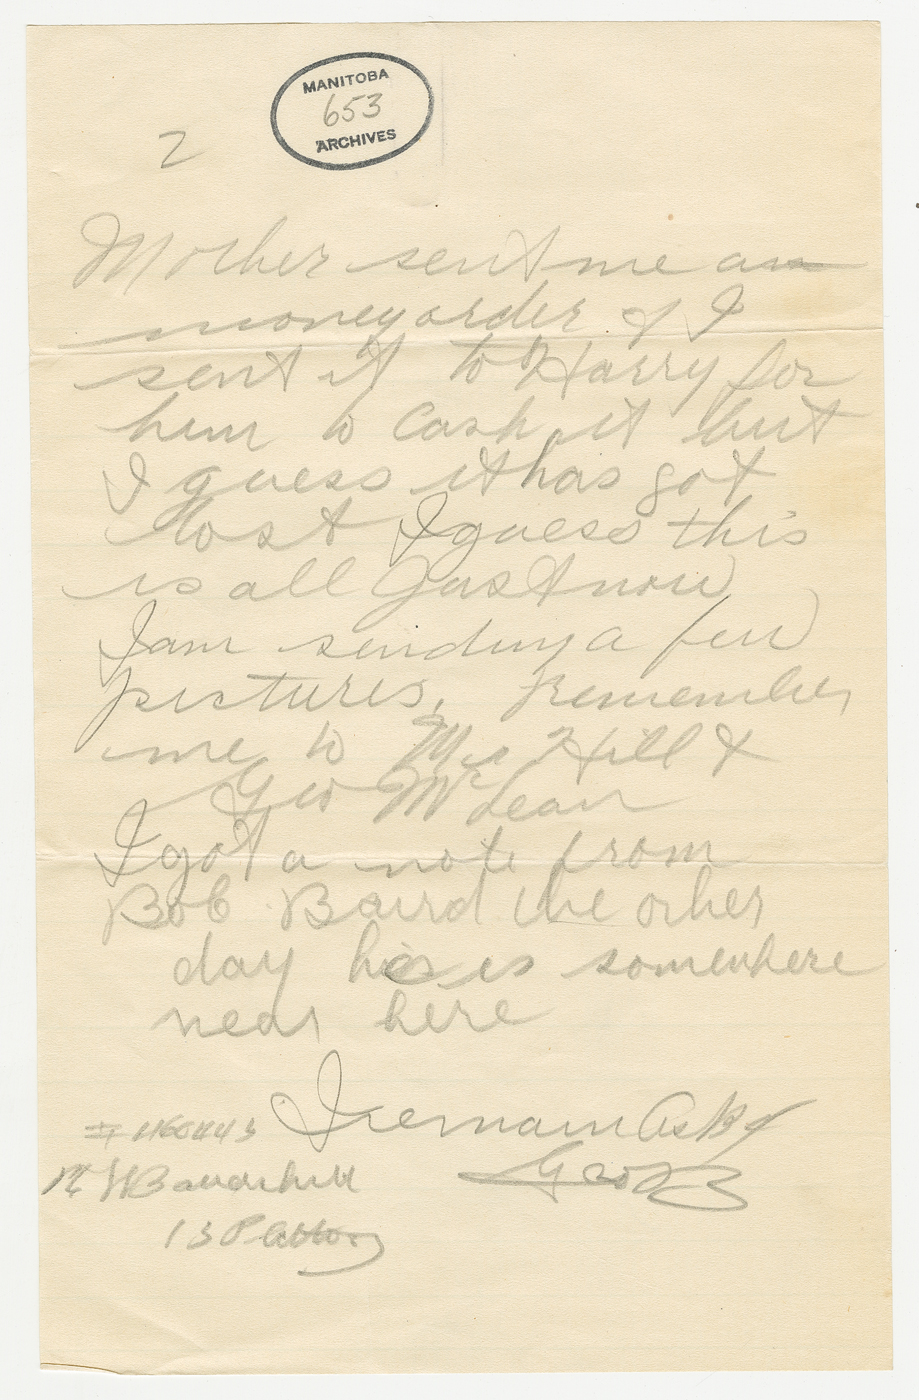 MANITOBA
653
ARCHIVES
2
Mother sent me a
money order & I
sent it to Harry for
him to cash it but
I guess it has got
lost I guess this
is all Just now
I am sending a few
pictures, remember
me to Mr Hill &
Geo McLean
I got a note from
Bob Baird the other
day he is somewhere
near here
I remain As B 4
Geo B
13 Plattoon